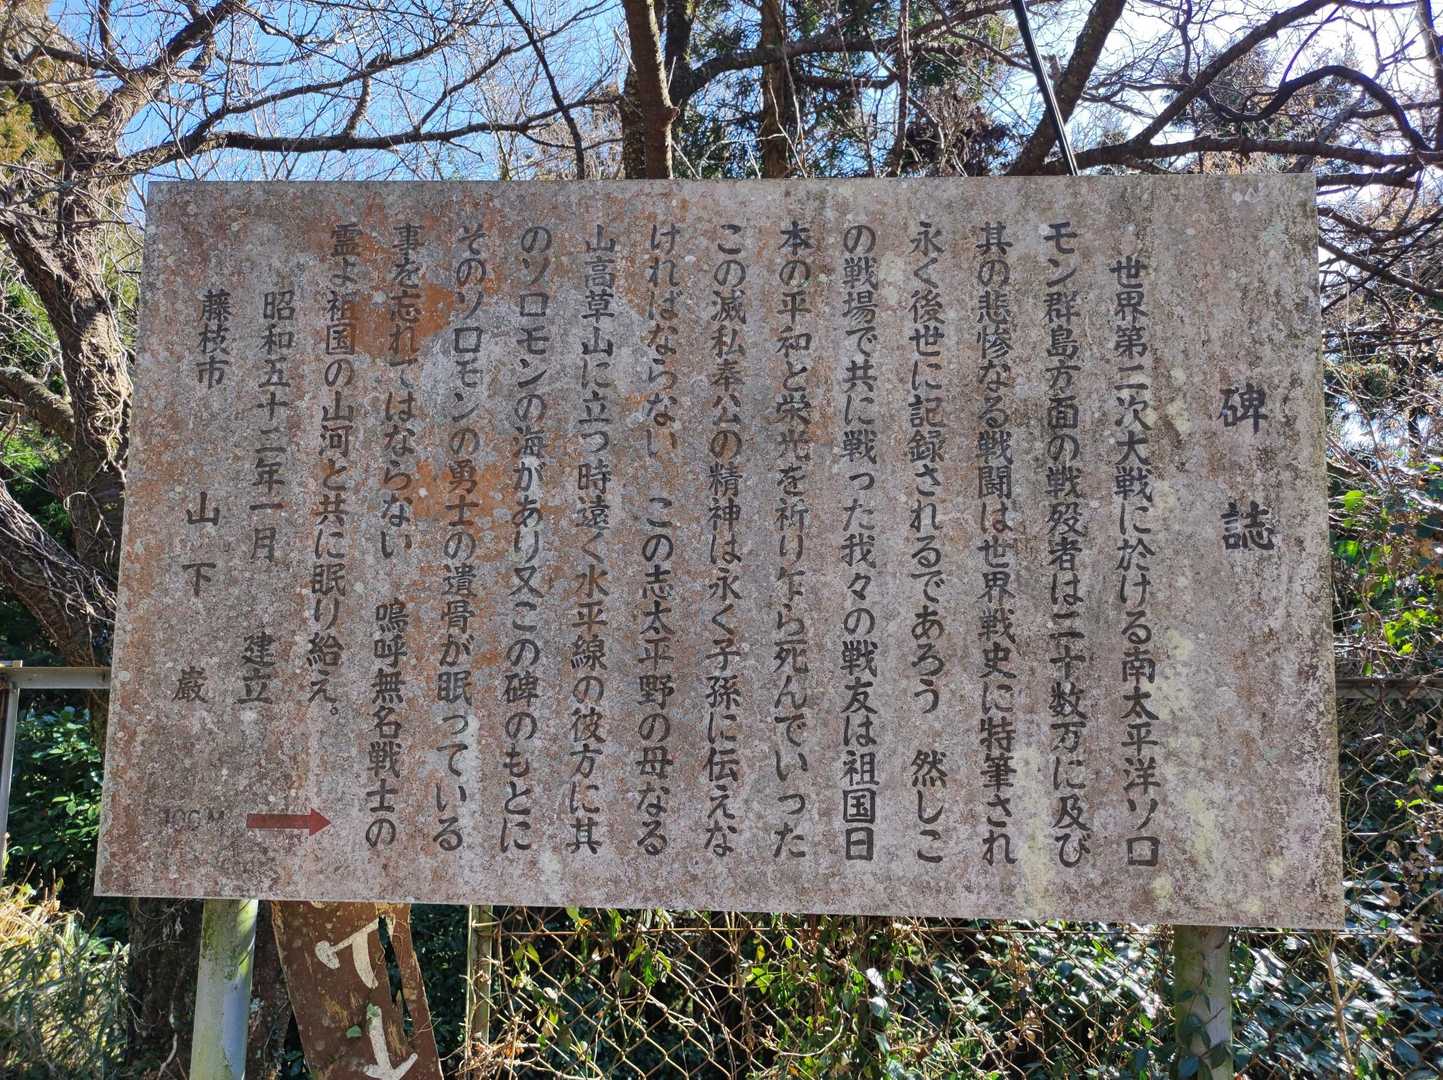 碑誌
世界第二次大戦に於ける南太平洋ソロ
モン群島方面の戦歿者は二十数万に及び
其の悲惨なる戦闘は世界戦史に特筆され
永く後世に記録されるであろう　然しこ
の戦場で共に戦った我々の戦友は祖国日
本の平和と栄光を祈り乍ら死んでいった
この滅私奉公の精神は永く子孫に伝えな
ければならない　この志太平野の母なる
山高草山に立つ時遠く水平線の彼方に其
のソロモンの海があり又この碑のもとに
そのソロモンの勇士の遺骨が眠っている
事を忘れてはならない　嗚呼無名戦士の
霊よ祖国の山河と共に眠り給え。
昭和五十二年一月　建立
藤枝市　山下　巌
100M